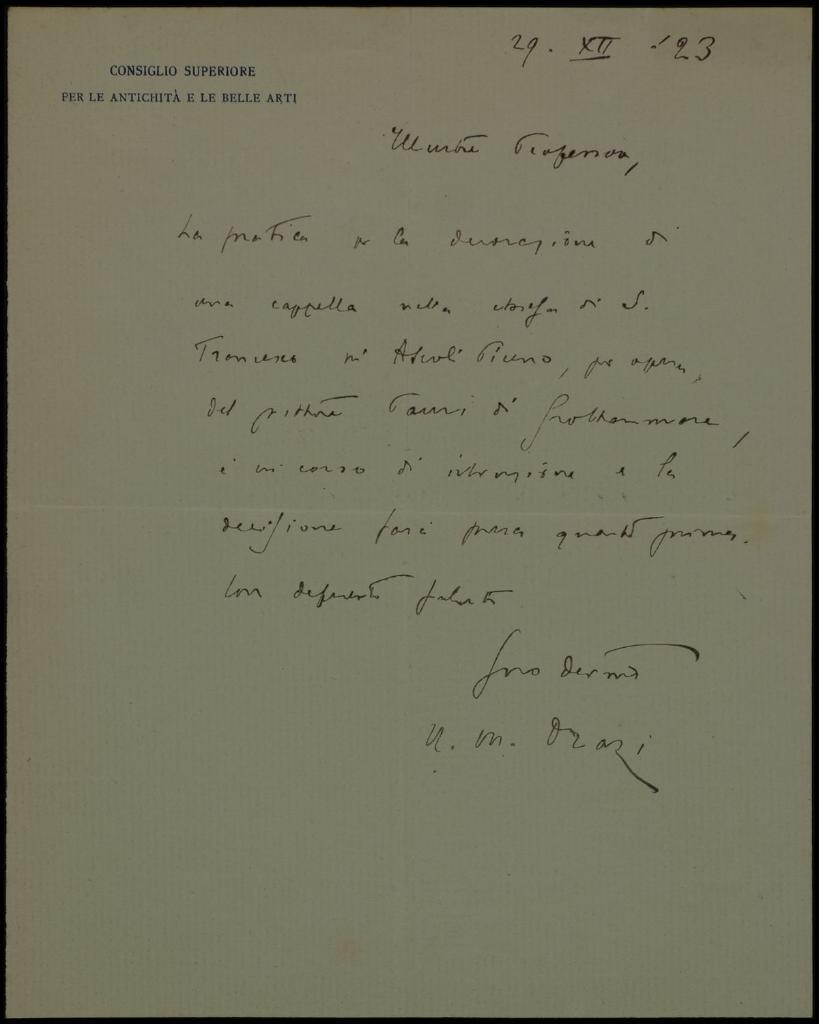 29. XII '23
CONSIGLIO SUPERIORE
PER LE ANTICHITÀ E LE BELLE ARTI
Illustre Professore,
La pratica per la decorazione di
una cappella nella chiesa di S.
Francesco in Ascoli Piceno, per opera
del pittore Pauri di Grottammare,
è in corso di istruzione e la
decisione sarà presa quanto prima.
Con deferenti saluti
Suo devmo
U. M.